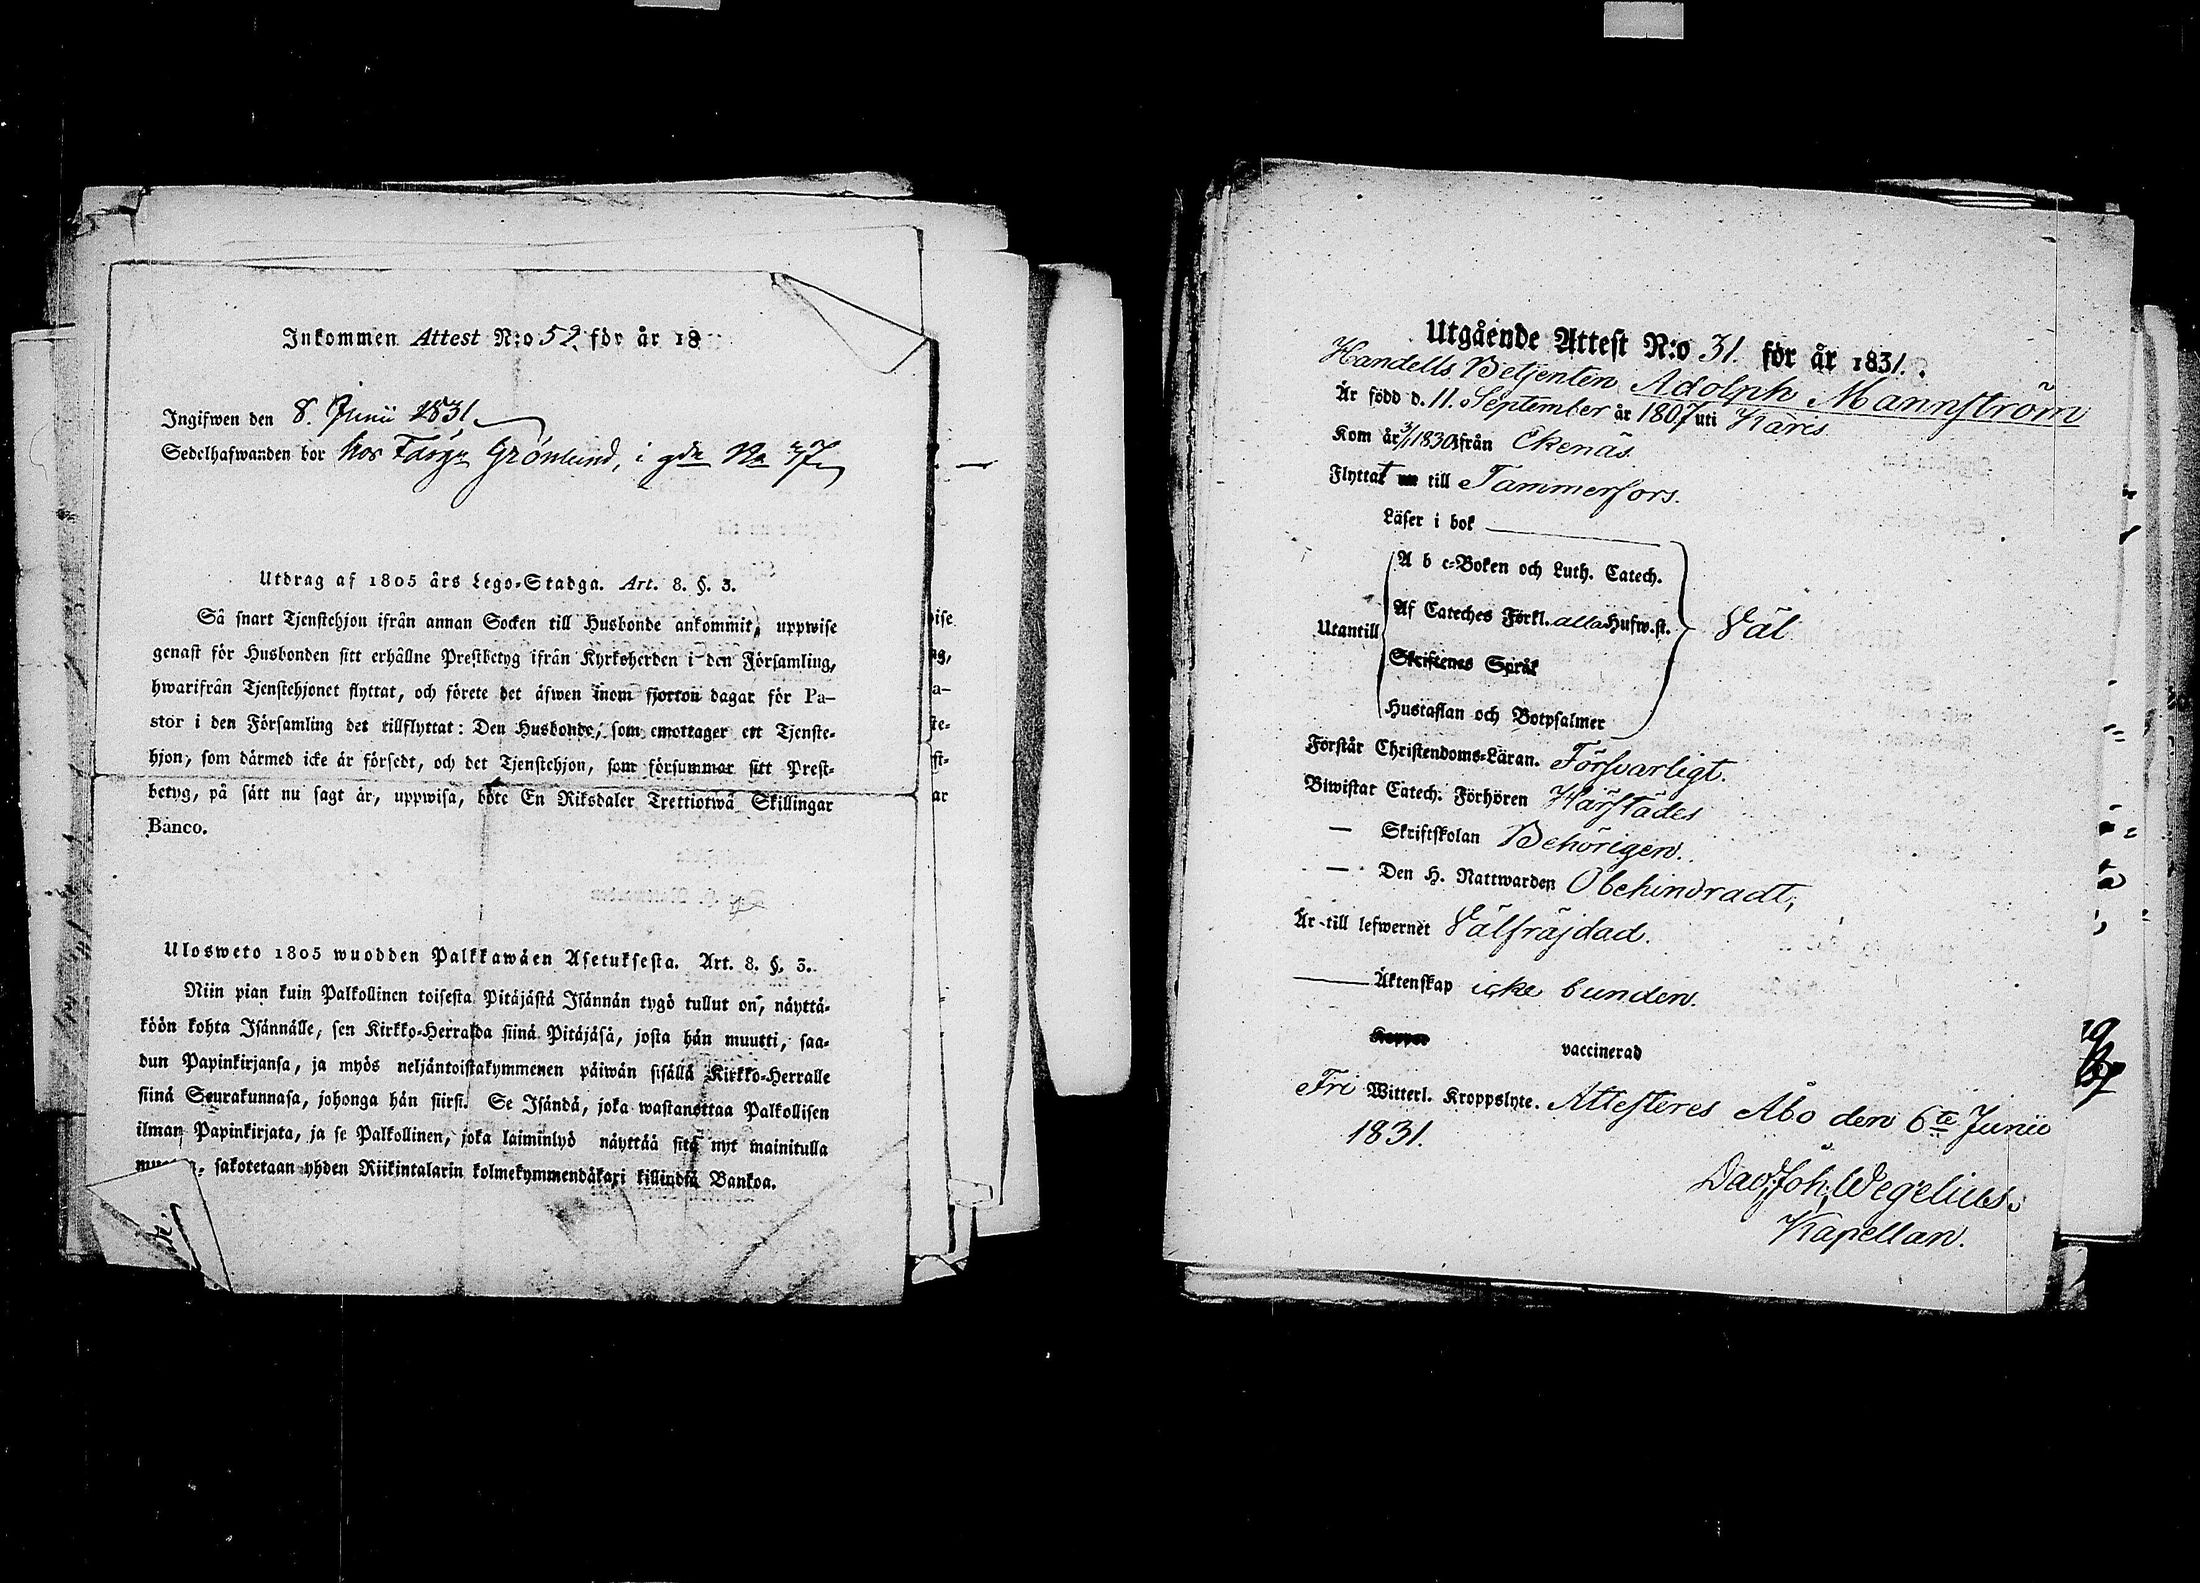 Inkommen Attest N:o 52 för år 18
Ingifwen den 8. Junii 1831
Sedelhafwanden bor hos Färg:n Grönlund, i gdn No 47
Utdrag af 1805 års Lego-Stadga. Art. 8. §. 3.
Så snart Tjenstehjon ifrån annan Socken till Husbonde ankommit, uppwise
genast för Husbonden sitt erhållne Prestbetyg ifrån Kyrkoherden i den Församling,
hwarifrån Tjenstehjonet flyttat, och förete det äfwen inom fjorton dagar för Pa-
stor i den Församling det tillflyttat: Den Husbonde, som emottager ett Tjenste-
hjon, som därmed icke är försedt, och det Tjenstehjon, som försummar sitt Prest-
betyg, på sätt nu sagt är, uppwisa, böte En Riksdaler Trettiotwå Skillingar
Banco.
Ulosweto 1805 wuodden Palkkawäen Asetuksesta. Art. 8. §. 3.
Niin pian kuin Palkollinen toisesta Pitäjästä Isännän tygö tullut on, näyttä-
köön kohta Isännälle, sen Kirkko-Herralda siinä Pitäjäsä, josta hän muutti, saa-
dun Papinkirjansa, ja myös neljäntoistakymmenen päiwän sisällä Kirkko-Herralle
siinä Seurakunnasa, johonga hän siirsi. Se Isändä, joka wastanottaa Palkollisen
ilman Papinkirjata, ja se Palkollinen, joka laiminlyö näyttää sitä nyt mainitulla
sakotetaan yhden Riikintalarin kolmekymmendäkaxi killindsiä Bankoa.
Utgående Attest N:o 31. för år 1831.
Handells Betjenten Adolph Mannström
Är född d. 11. September år 1807 uti Karis
Kom år 3/1 1830 ifrån Ekenäs
Flyttat nu till Tammerfors.
Läser i bok
A b c-Boken och Luth. Catech.
Af Cateches Förkl. alla Hufw.st.
Utantill Väl
Skriftenes Språk
Hustaflan och Botpsalmer
Förstår Christendoms-Läran. Försvarligt.
Biwistat Catech. Förhören Härstädes
— Skriftskolan Behörigen.
— Den H. Nattwarden Obehindradt,
Är till lefwernet Välfräjdad.
Äktenskap icke bunden.
Koppor vaccinerad
Fri Witterl. Kroppslyte. Attesteres Åbo den 6te Junii
1831.
Dav: Joh: Wegelius.
Kapellan.